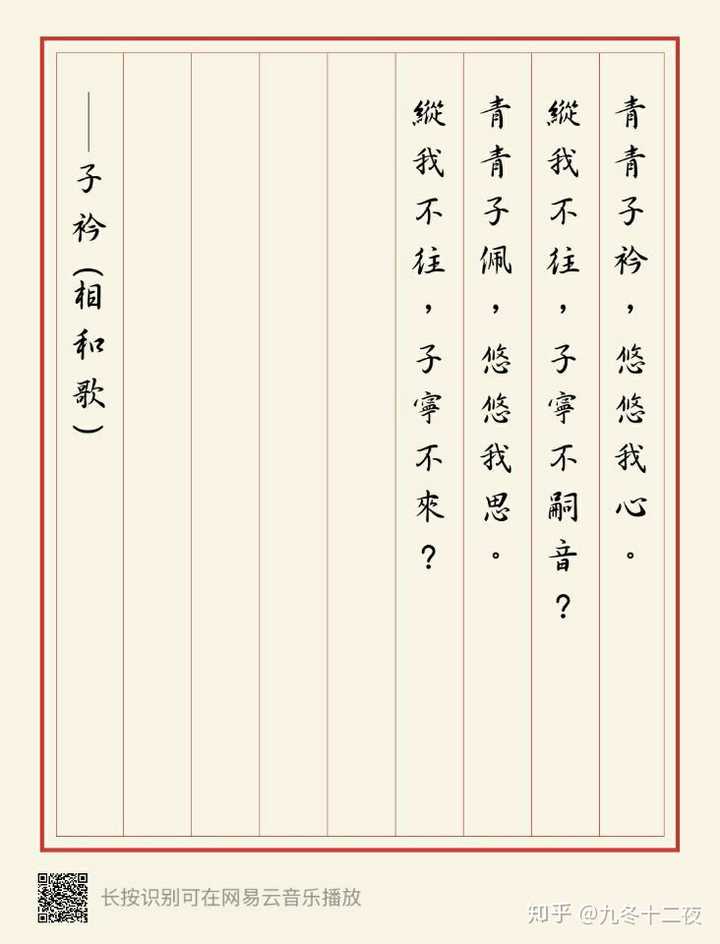 青青子衿，悠悠我心。
縱我不往，子寧不嗣音？
青青子佩，悠悠我思。
縱我不往，子寧不來？
——子衿(相和歌)
长按识别可在网易云音乐播放
知乎 @九冬十二夜